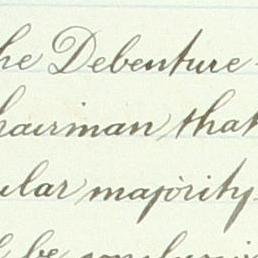 he Debenture
hairman that
ular majority
be conclusiv